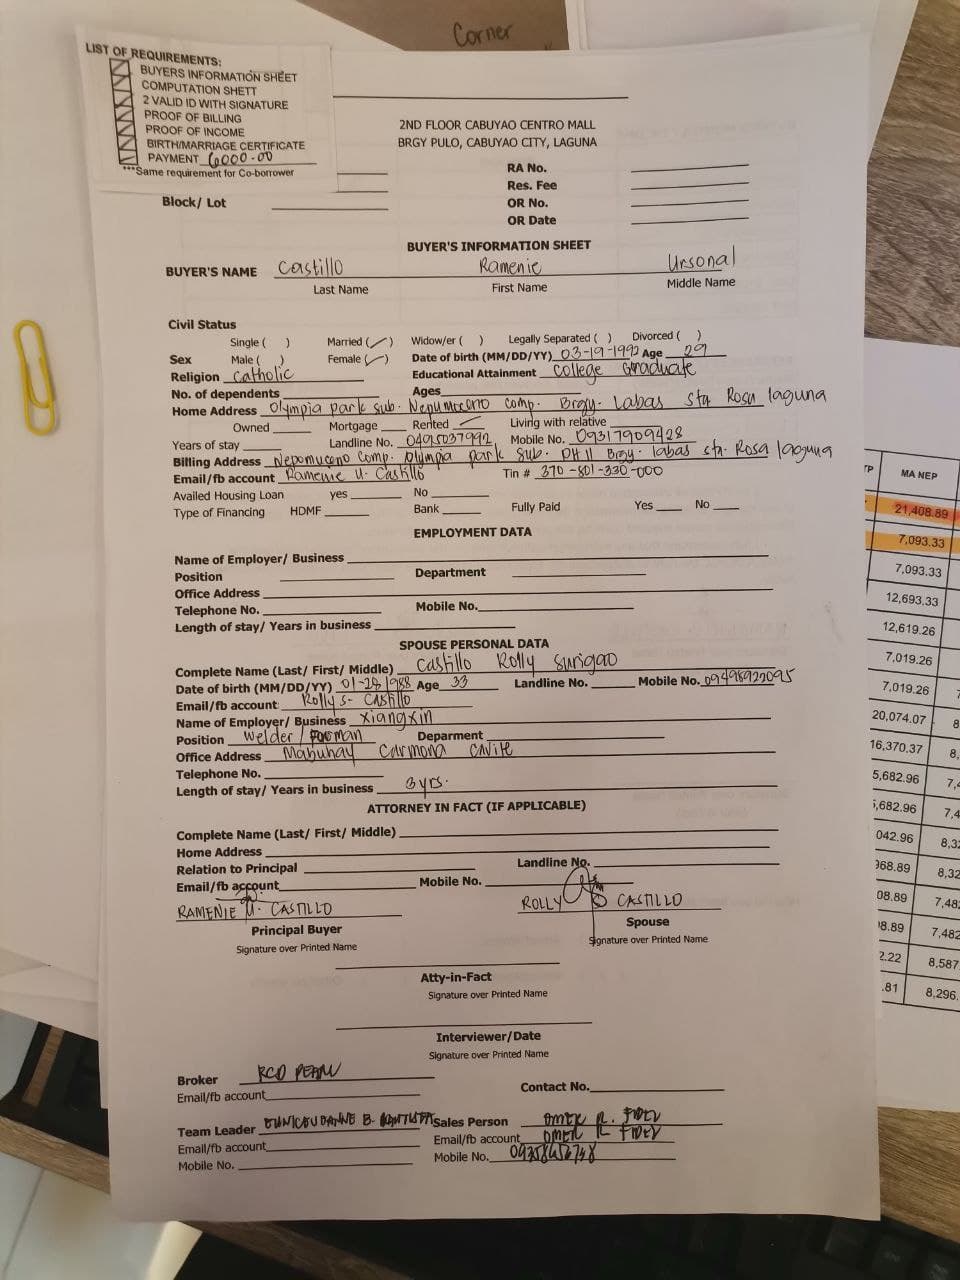 Corner
LIST OF REQUIREMENTS:
BUYERS INFORMATION SHEET
COMPUTATION SHETT
2 VALID ID WITH SIGNATURE
PROOF OF BILLING
PROOF OF INCOME
BIRTH/MARRIAGE CERTIFICATE
PAYMENT 6000.00
***Same requirement for Co-borrower
2ND FLOOR CABUYAO CENTRO MALL
BRGY PULO, CABUYAO CITY, LAGUNA
RA No.
Res. Fee
Block/ Lot OR No.
OR Date
BUYER'S INFORMATION SHEET
BUYER'S NAME Castillo Ramenie Ursonal
Last Name First Name Middle Name
Civil Status
Single ( ) Married (✓) Widow/er ( ) Legally Separated ( ) Divorced ( )
Sex Male ( ) Female (✓) Date of birth (MM/DD/YY) 03-19-1992 Age 29
Religion Catholic Educational Attainment College Graduate
No. of dependents Ages
Home Address Olympia park sub. Nepumoceno comp. Brgy. Labas sta Rosa laguna
Owned Mortgage Rented ✓ Living with relative
Years of stay Landline No. 0495037992 Mobile No. 09317909428
Billing Address Nepomuceno Comp. Olympia park Sub. PH II Brgy. labas sta. Rosa laguna
Email/fb account Ramenie U. Castillo Tin # 370-801-330-000
Availed Housing Loan yes No
Type of Financing HDMF Bank Fully Paid Yes No
EMPLOYMENT DATA
Name of Employer/ Business
Position Department
Office Address
Telephone No. Mobile No.
Length of stay/ Years in business
SPOUSE PERSONAL DATA
Complete Name (Last/ First/ Middle) Castillo Rolly Surigao
Date of birth (MM/DD/YY) 01-28-1988 Age 33 Landline No. Mobile No. 09498922095
Email/fb account: Rolly S. Castillo
Name of Employer/ Business xiangxin
Position Welder / Forman Deparment
Office Address Mabuhay Carmona Cavite
Telephone No.
Length of stay/ Years in business 3 yrs.
ATTORNEY IN FACT (IF APPLICABLE)
Complete Name (Last/ First/ Middle)
Home Address
Relation to Principal Landline No.
Email/fb account Mobile No.
RAMENIE U. CASTILLO ROLLY S CASTILLO
Principal Buyer Spouse
Signature over Printed Name Signature over Printed Name
Atty-in-Fact
Signature over Printed Name
Interviewer/Date
Signature over Printed Name
Broker RCD PEARL
Email/fb account Contact No.
Team Leader B. BAUTISTA Sales Person OMER R. FIDEL
Email/fb account Email/fb account OMER R FIDEL
Mobile No. Mobile No.
MA NEP
21,408.89
7,093.33
7,093.33
12,693.33
12,619.26
7,019.26
7,019.26
20,074.07
16,370.37
5,682.96
5,682.96
042.96 8,32
968.89 8,32
08.89 7,482
8.89 7,482
2.22 8,587
.81 8,296.